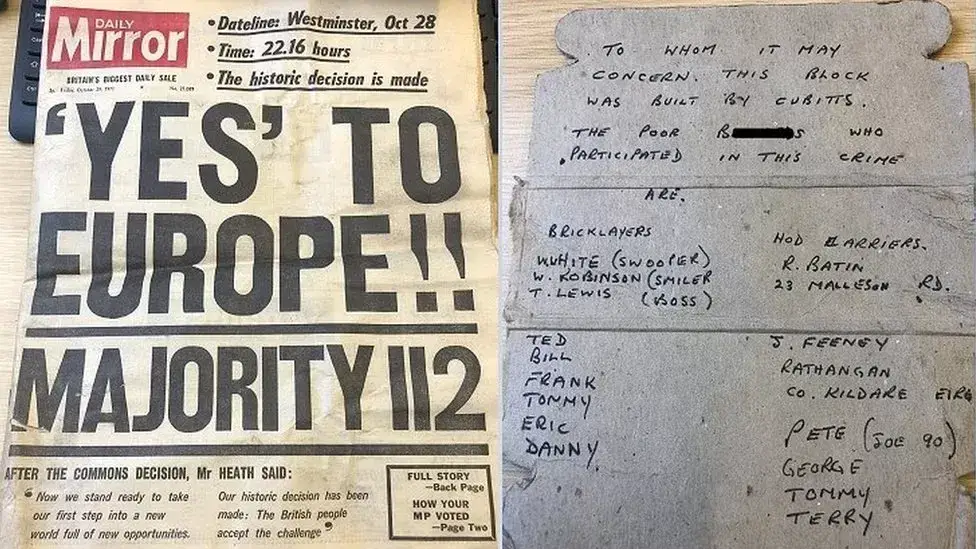 DAILY
Mirror
BRITAIN'S BIGGEST DAILY SALE
Friday, October 29, 1971
• Dateline: Westminster, Oct 28
• Time: 22.16 hours
• The historic decision is made
'YES' TO
EUROPE!!
MAJORITY 112
AFTER THE COMMONS DECISION, Mr HEATH SAID:
“Now we stand ready to take
our first step into a new
world full of new opportunities.
Our historic decision has been
made: The British people
accept the challenge”
FULL STORY
—Back Page
HOW YOUR
MP VOTED
—Page Two
TO WHOM IT MAY
CONCERN. THIS BLOCK
WAS BUILT BY CUBITTS.
THE POOR B S WHO
PARTICIPATED IN THIS CRIME
ARE.
BRICKLAYERS
WHITE (SWOOPER)
W. ROBINSON (SMILER
T. LEWIS (BOSS)
TED
BILL
FRANK
TOMMY
ERIC
DANNY
HOD CARRIERS.
R. BATIN
23 MALLESON RD.
J. FEENEY
RATHANGAN
CO. KILDARE EIRE
PETE (JOE 90)
GEORGE
TOMMY
TERRY